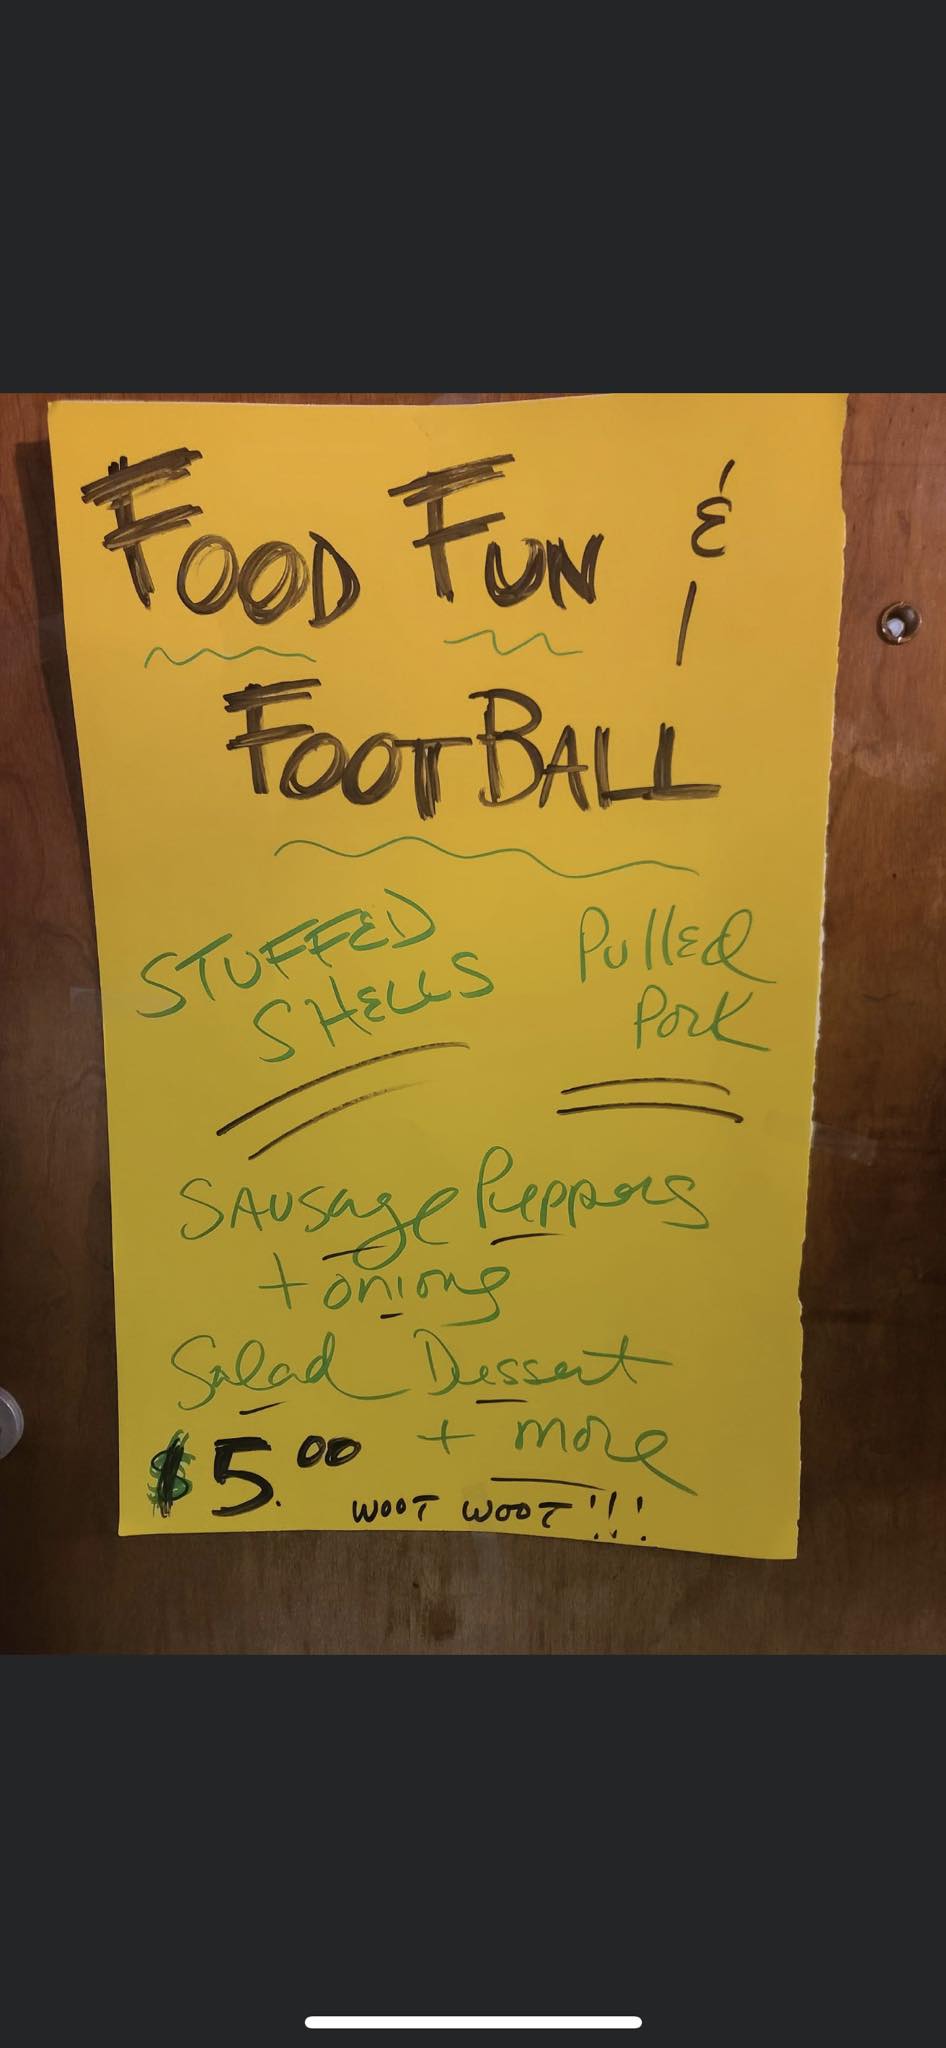 FOOD FUN &
FOOTBALL
STUFFED
SHELLS
Pulled
Pork
SAUSage Peppers
+ onions
Salad Dessert
+ more
$5.00
WOOT WOOT!!!